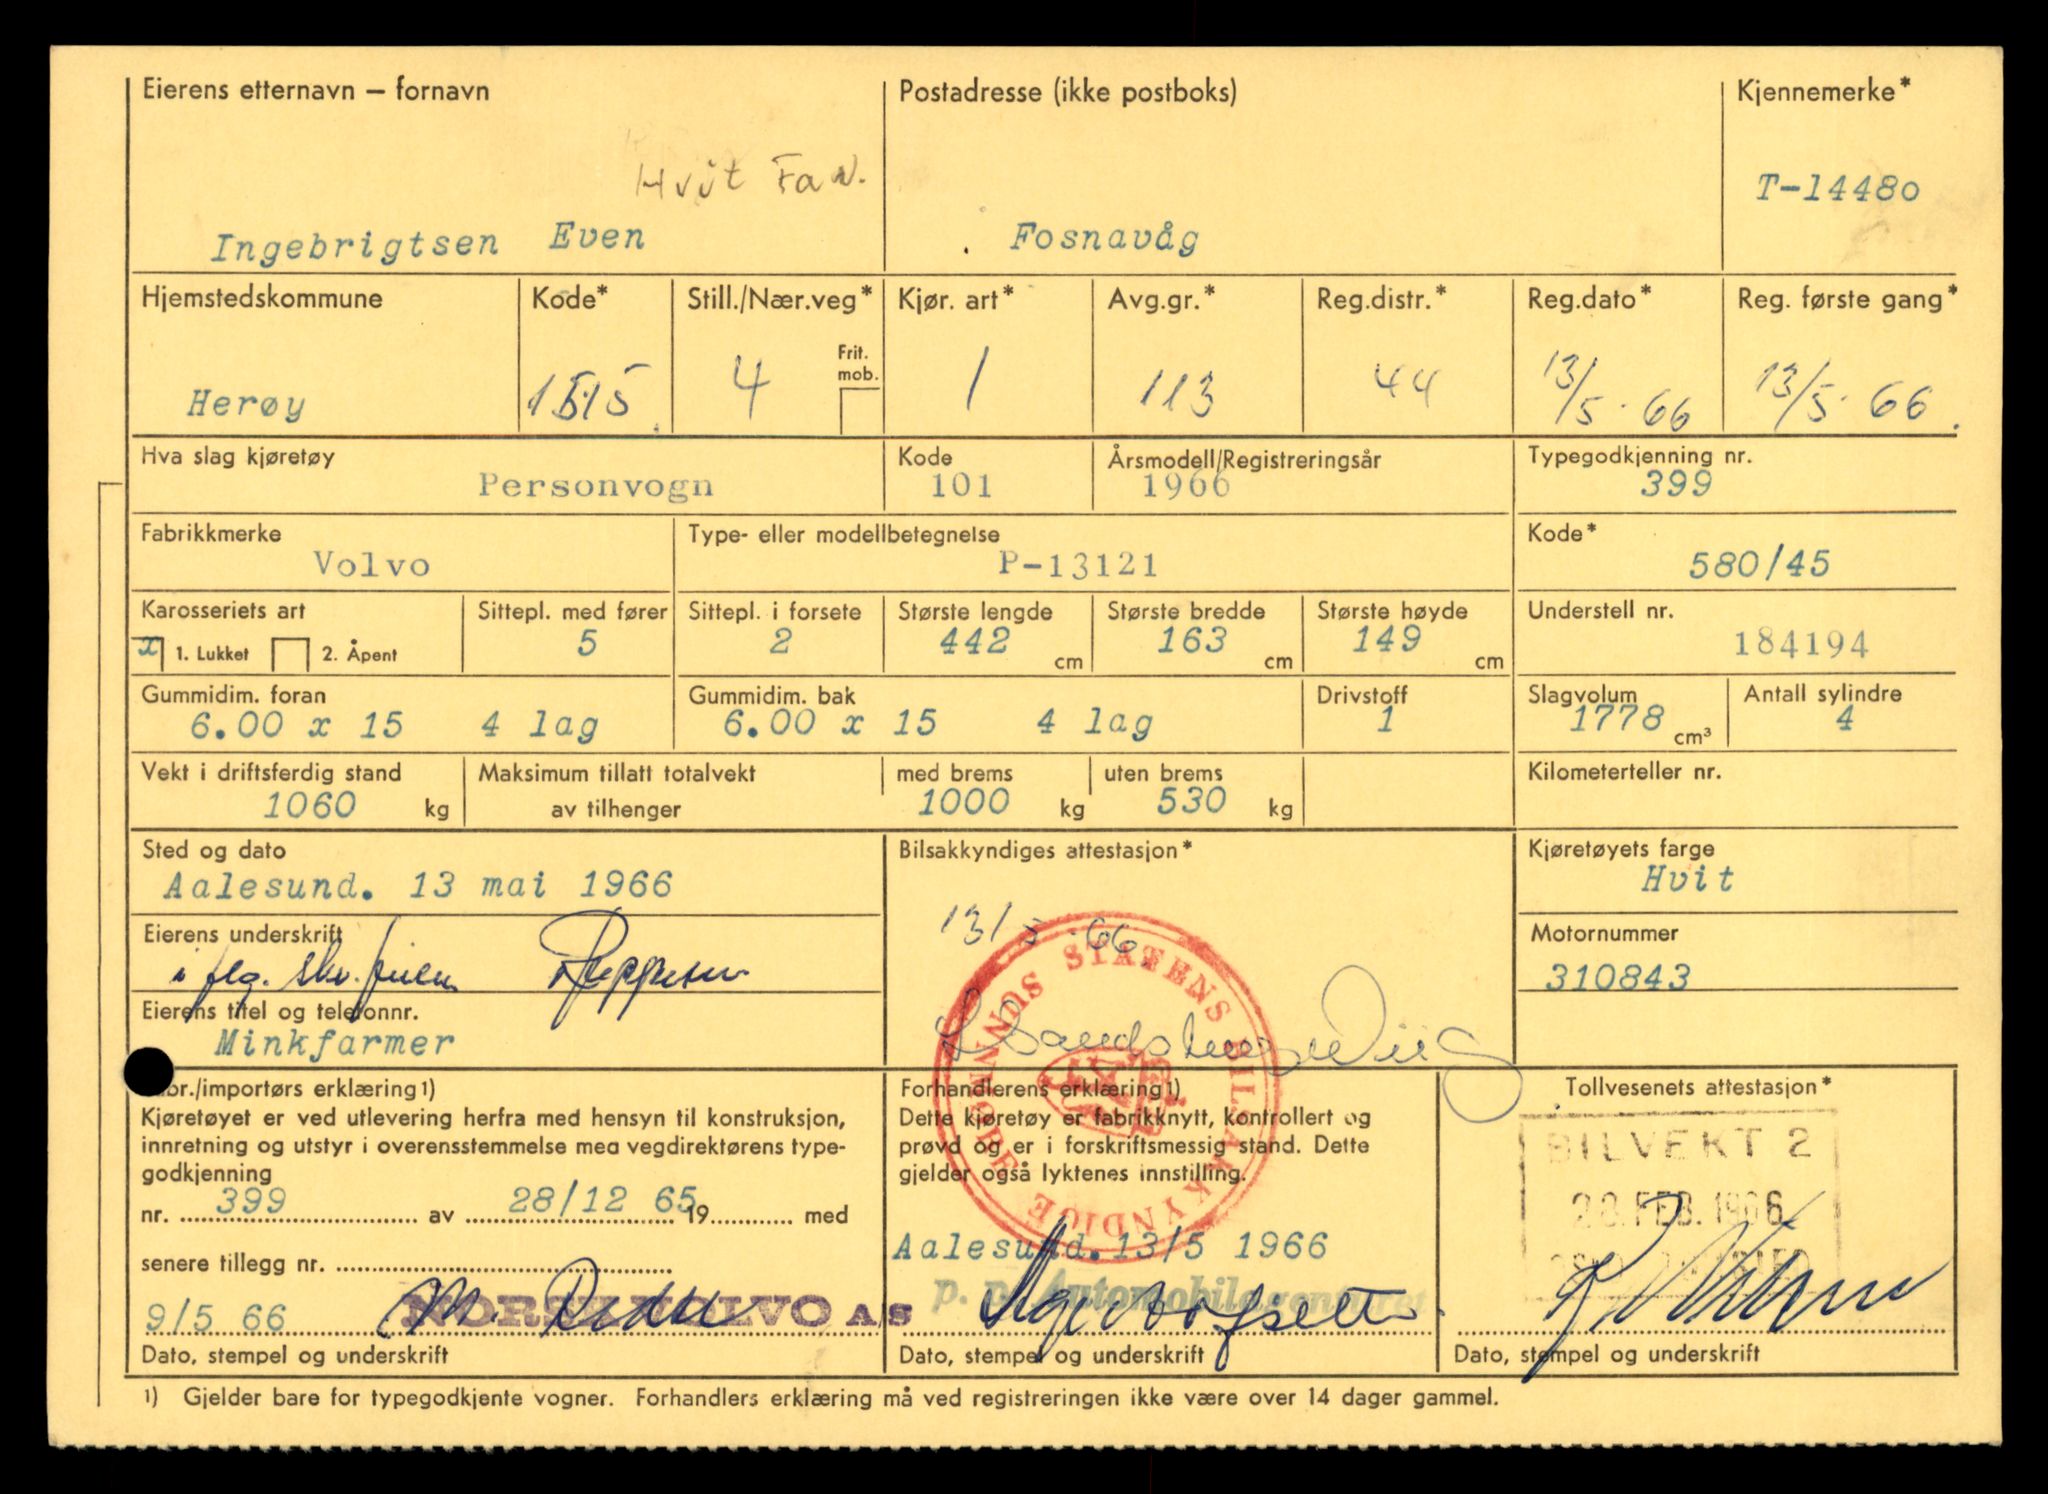 Eierens etternavn – fornavn
Postadresse (ikke postboks)
Kjennemerke*
Hvit
T-14480
Ingebrigtsen Even
Fosnavåg
Hjemstedskommune
Kode*
Still./Nær.veg*
Kjør. art*
Avg.gr.*
Reg.distr.*
Reg.dato*
Reg. første gang*
Frit.
mob.
Herøy
1515
4
1
113
44
13/5. 66
13/5. 66
Hva slag kjøretøy
Kode
Årsmodell/Registreringsår
Typegodkjenning nr.
Personvogn
101
1966
399
Fabrikkmerke
Type- eller modellbetegnelse
Kode*
Volvo
P-13121
580/45
Karosseriets art
Sittepl. med fører
Sittepl. i forsete
Største lengde
Største bredde
Største høyde
Understell nr.
x 1. Lukket 2. Åpent
5
2
442 cm
163 cm
149 cm
184194
Gummidim. foran
Gummidim. bak
Drivstoff
Slagvolum
Antall sylindre
6.00 x 15 4 lag
6.00 x 15 4 lag
1
1778 cm³
4
Vekt i driftsferdig stand
Maksimum tillatt totalvekt
med brems
uten brems
Kilometerteller nr.
1060 kg
av tilhenger
1000 kg
530 kg
Sted og dato
Bilsakkyndiges attestasjon*
Kjøretøyets farge
Aalesund. 13 mai 1966
Hvit
13/5.66
Eierens underskrift
Motornummer
310843
STATENS BILSAKKYNDIGE
Eierens titel og telefonnr.
Minkfarmer
br./importørs erklæring1)
Kjøretøyet er ved utlevering herfra med hensyn til konstruksjon,
innretning og utstyr i overensstemmelse med vegdirektørens type-
godkjenning
nr. 399 av 28/12 65 19 med
senere tillegg nr.
9/5 66 NORSK VOLVO A/S
Dato, stempel og underskrift
Forhandlerens erklæring1)
Dette kjøretøy er fabrikknytt, kontrollert og
prøvd og er i forskriftsmessig stand. Dette
gjelder også lyktenes innstilling.
Aalesund. 13/5 1966
p. p. Automobilagenturet
Dato, stempel og underskrift
Tollvesenets attestasjon*
BILVEKT 2
28. FEB. 1966
Dato, stempel og underskrift
1) Gjelder bare for typegodkjente vogner. Forhandlers erklæring må ved registreringen ikke være over 14 dager gammel.